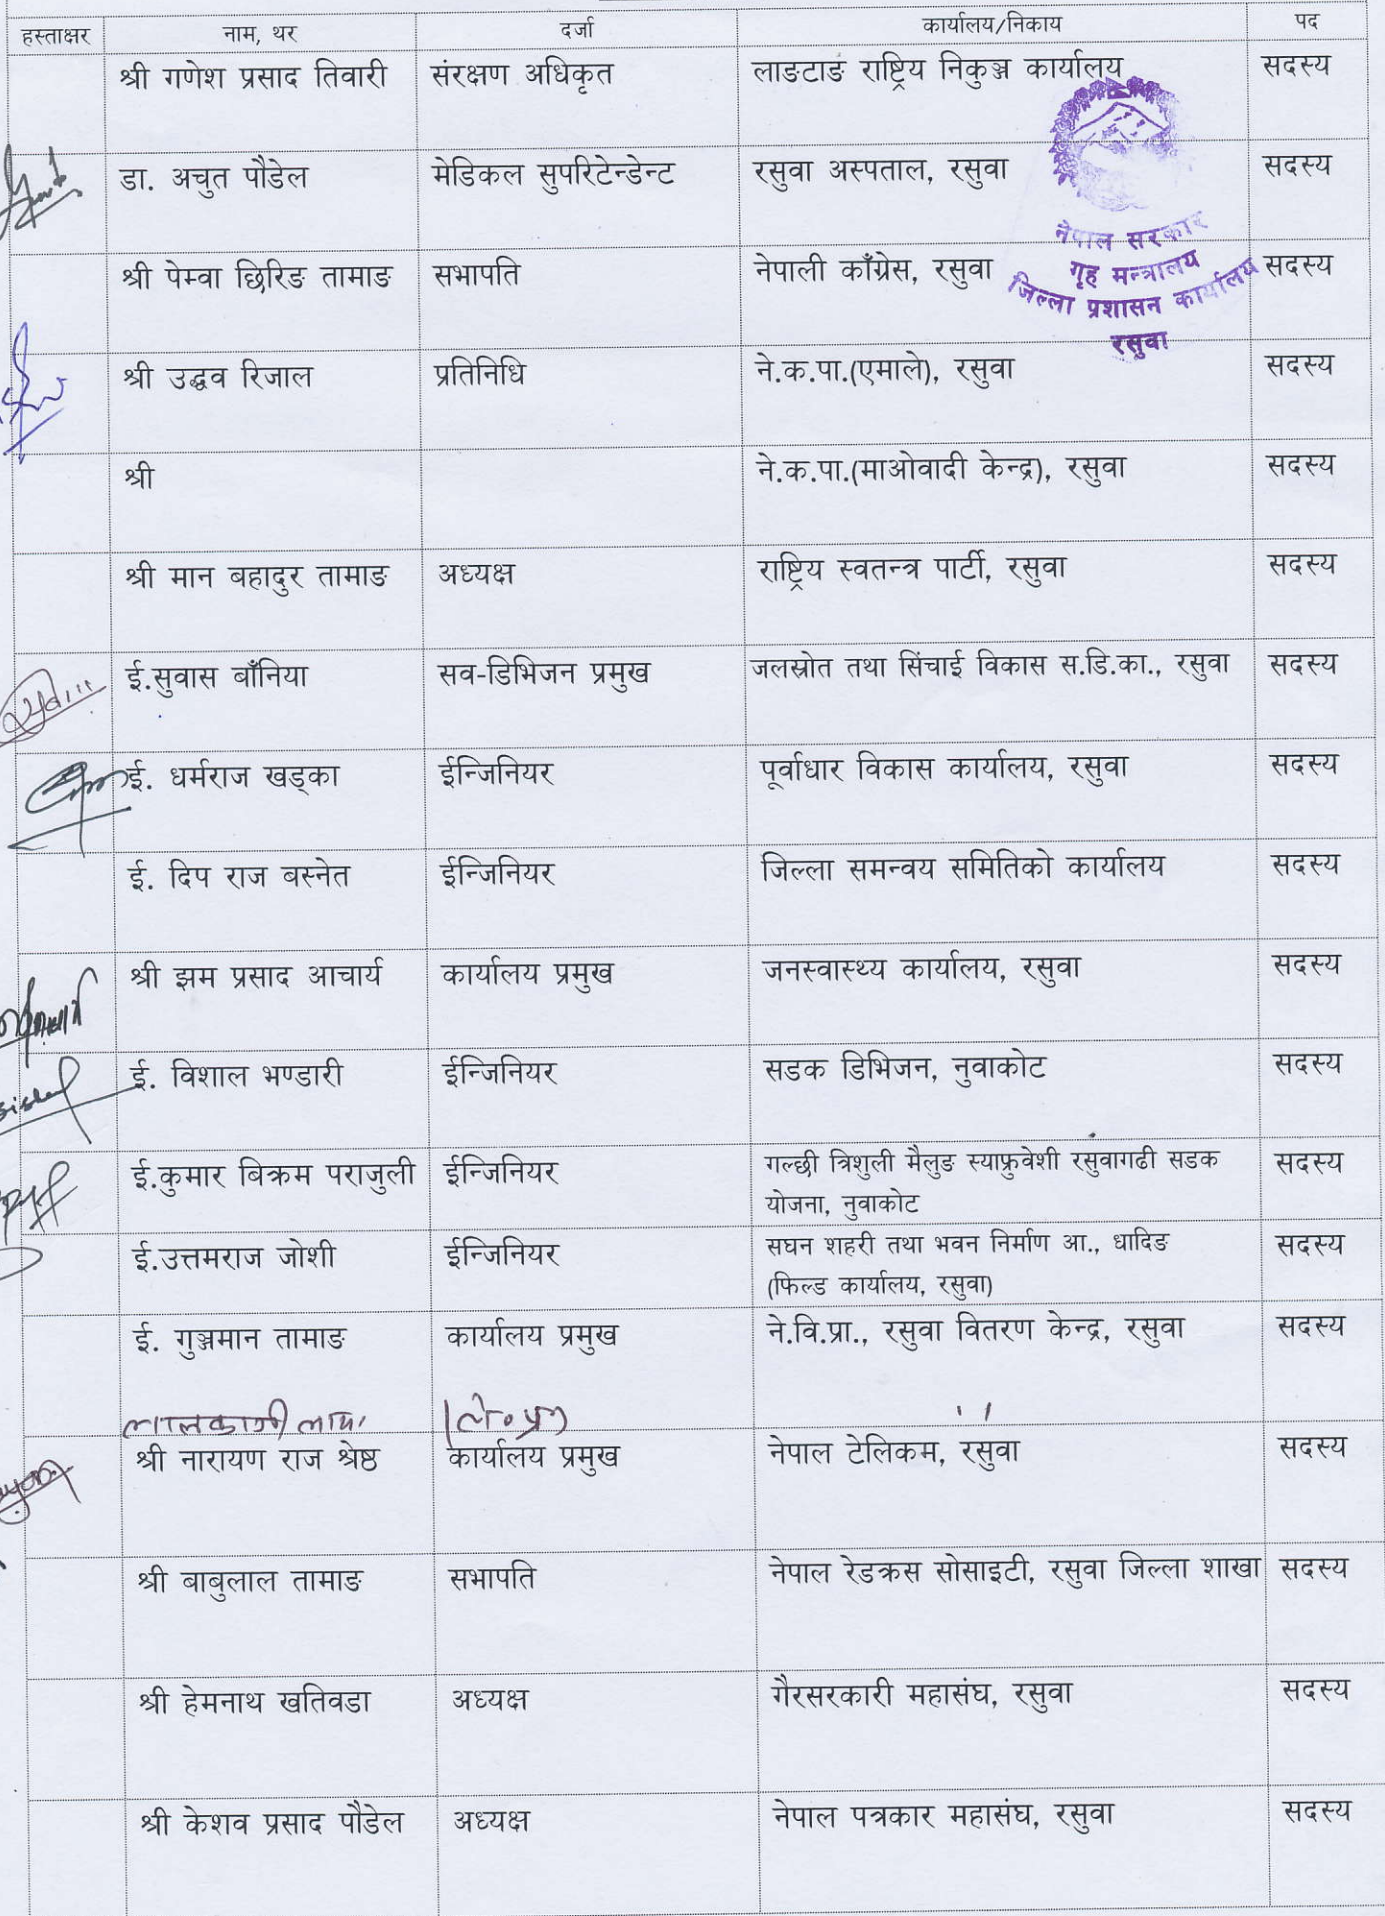 हस्ताक्षर नाम, थर दर्जा कार्यालय/निकाय पद
श्री गणेश प्रसाद तिवारी संरक्षण अधिकृत लाङटाङं राष्ट्रिय निकुञ्ज कार्यालय सदस्य
डा. अचुत पौडेल मेडिकल सुपरिटेन्डेन्ट रसुवा अस्पताल, रसुवा सदस्य
नेपाल सरकार
श्री पेम्वा छिरिङ तामाङ सभापति नेपाली काँग्रेस, रसुवा सदस्य
गृह मन्त्रालय
जिल्ला प्रशासन कार्यालय
रसुवा
श्री उद्धव रिजाल प्रतिनिधि ने.क.पा.(एमाले), रसुवा सदस्य
श्री ने.क.पा.(माओवादी केन्द्र), रसुवा सदस्य
श्री मान बहादुर तामाङ अध्यक्ष राष्ट्रिय स्वतन्त्र पार्टी, रसुवा सदस्य
ई.सुवास बाँनिया सव-डिभिजन प्रमुख जलस्रोत तथा सिंचाई विकास स.डि.का., रसुवा सदस्य
ई. धर्मराज खड्का ईन्जिनियर पूर्वाधार विकास कार्यालय, रसुवा सदस्य
ई. दिप राज बस्नेत ईन्जिनियर जिल्ला समन्वय समितिको कार्यालय सदस्य
श्री झम प्रसाद आचार्य कार्यालय प्रमुख जनस्वास्थ्य कार्यालय, रसुवा सदस्य
ई. विशाल भण्डारी ईन्जिनियर सडक डिभिजन, नुवाकोट सदस्य
ई.कुमार बिक्रम पराजुली ईन्जिनियर गल्छी त्रिशुली मैलुङ स्याफ्रुवेशी रसुवागढी सडक सदस्य
योजना, नुवाकोट
ई.उत्तमराज जोशी ईन्जिनियर सघन शहरी तथा भवन निर्माण आ., धादिङ सदस्य
(फिल्ड कार्यालय, रसुवा)
ई. गुञ्जमान तामाङ कार्यालय प्रमुख ने.वि.प्रा., रसुवा वितरण केन्द्र, रसुवा सदस्य
श्री नारायण राज श्रेष्ठ कार्यालय प्रमुख नेपाल टेलिकम, रसुवा सदस्य
श्री बाबुलाल तामाङ सभापति नेपाल रेडक्रस सोसाइटी, रसुवा जिल्ला शाखा सदस्य
श्री हेमनाथ खतिवडा अध्यक्ष गैरसरकारी महासंघ, रसुवा सदस्य
श्री केशव प्रसाद पौडेल अध्यक्ष नेपाल पत्रकार महासंघ, रसुवा सदस्य